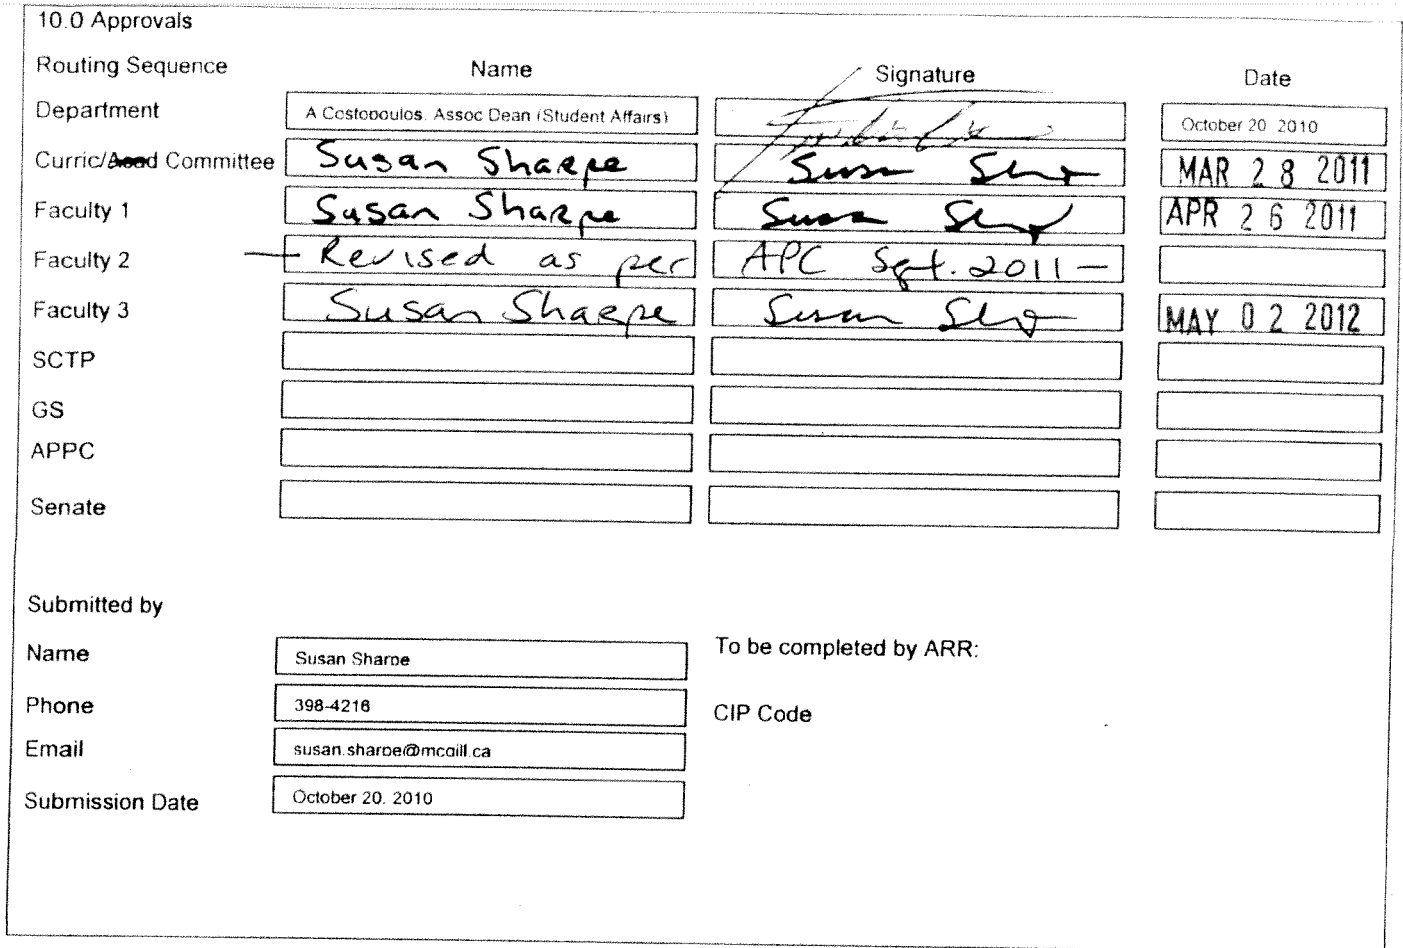 10.0 Approvals
Routing Sequence Name Signature Date
Department A Costopoulos. Assoc Dean (Student Affairs) October 20 2010
Curric/Acad Committee Susan Sharpe Susan Sharpe MAR 28 2011
Faculty 1 Susan Sharpe Susan Sharpe APR 26 2011
Faculty 2 — Revised as per APC Sept. 2011 —
Faculty 3 Susan Sharpe Susan Sharpe MAY 02 2012
SCTP
GS
APPC
Senate
Submitted by
Name Susan Sharpe To be completed by ARR:
Phone 398-4216 CIP Code
Email susan.sharpe@mcgill.ca
Submission Date October 20. 2010